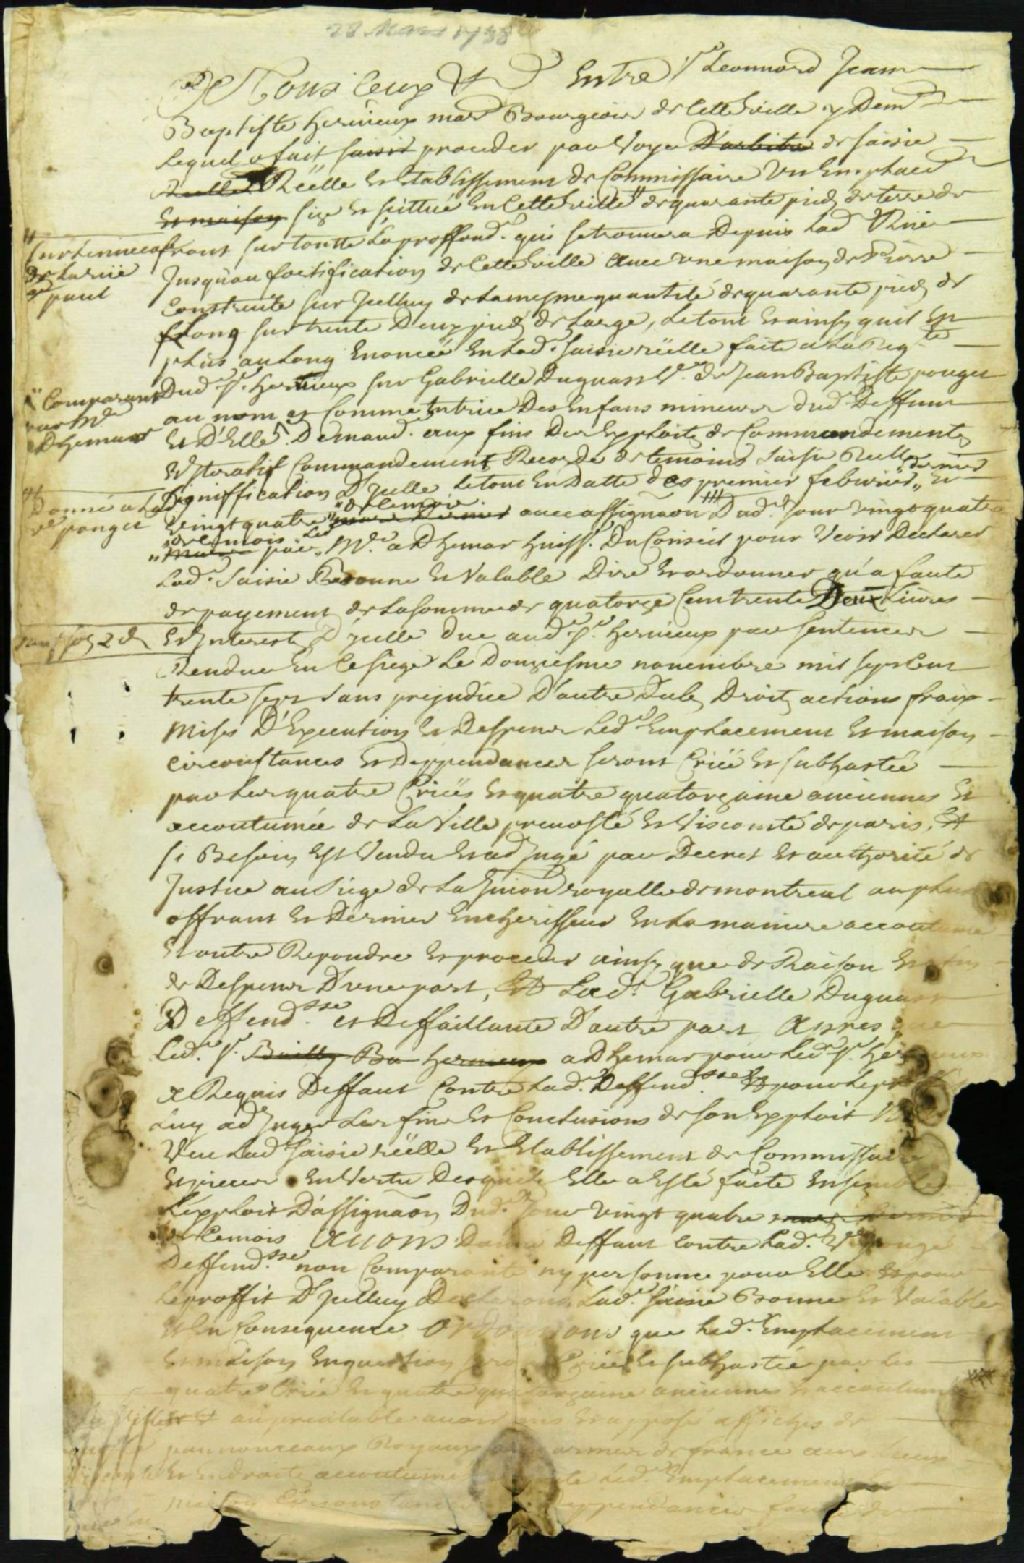 28 Mars 1738
A Tous Ceux &c Entre Sr Leonnard Jean
Baptiste hervieux mard Bourgeois de Cette ville Demr
Lequel a fait saisir proceder par Voye D'arbitre de saisie
Reelle Réëlle et Etablissement de Commissaire Un Emplacd
Et maison size et scittué En Cette ville de quarante pieds de terre de
sur la rue
St paul
front sur toutte La proffond. qui se trouvera Depuis lad. Rüe
Jusqu'au fortification de Cette ville avec une maison de Pierre
Construite sur Jcelluy de la mesme quantité de quarante pieds de
Long sur trente Deux pieds de Large, Le tout Et ainsy quil Est
plus au Long Enoncée En lad. saisie réëlle faite a la Reqte
Dud. Sr. Hervieux sur Gabrielle Duquas Ve. de Jean Baptiste pouget
Comparant
par Me
Adhemar
au nom et Comme tutrice Des Enfans mineurs dud. Deffunt
Et D'Elle, Demand. aux fins Des Exploits de Commandements
Jteratif Commandement Recordé de temoins saisie Reelle
Signiffication D'Jcelle Le tout En Datte des premier febvrier dernier Et
Donné a la de
Ve pouget
Vingt quatre de Ce mois avec assignaon Dud. Jour vingt quatre
de Ce mois par Me. aDhemar huissr. Du Conseil pour Veoir Declarer
Lad. Saisie Bonne Et Valable Dire Et ordonner qu'a faute
de payement de La somme de quatorze Cent trente Deux Livres
Et Jnterest D'Jcelle due aud. Sr. hervieux par sentence
Rendue En Ce siege Le Douziesme novembre mil sept Cent
trente sept sans prejudice D'autre Dub Droits actions fraix
Mises D'Execution Et Despens Led. Emplacement Et maison
circonstances Et Deppendances seront Criéé Et subhastée
par Les quatre Criées Et quatre quatorzaine anciennes Et
accoutumée de La Ville prevosté Et Viscomté de paris, Et
si Besoin Est Vendu Et adjugé par Decret Et authorité de
Justice au siege de La Jurion royalle de montreal au plus
offrant Et Dernier Encherisseur En La maniere accoutumé
Et outre Repondre Et proceder ainsy que de Raison
de Despens D'une part, Et Lad. Gabrielle Duquas
Deffendsse et Deffaillante D'autre part Apres que
Led. Sr. Bailly Ba hervieux aDhemar pour Led. Sr. Hervieux
a Requis Deffaut Contre Lad. Deffendsse Et pour Le proffit
Luy adjuger Les fins Et Conclusions de son Exploit
Veu Lad. saisie réëlle Et Etablissement de Commissaire
Et pieces En Vertu Desquels Elle a Esté faite Ensemble
L'exploit D'assignaon Dud. Jour vingt quatre mars Dernier
de Ce mois Avons Donné Deffaut contre Lad. Ve pouget
Deffendsse non Comparante ny personne pour Elle Et pour
Le proffit D'Jcelluy Declarons Lad. Saisie Bonne Et Valable
Et En Consequence Ordonnons que Led. Emplacement
Et maison En question sera Criée Et subhastée par Les
quatre Criée Et quatre quatorzaine anciennes Et accoutumé
au prealable avoir mis Et apposé affiches de
pannonceaux Royaux aux armes de france aux Lieux
Et Endroits accoutumé Led. Emplacement
maison Circonstances Deppendances